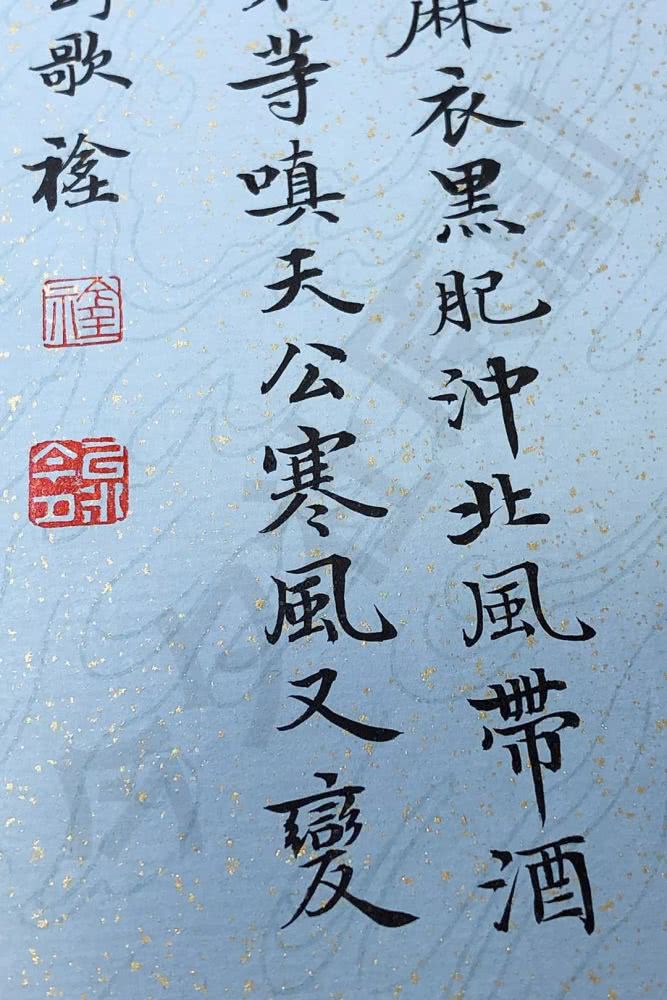 麻衣黑肥沖北風帶酒
等嗔天公寒風又變
歌